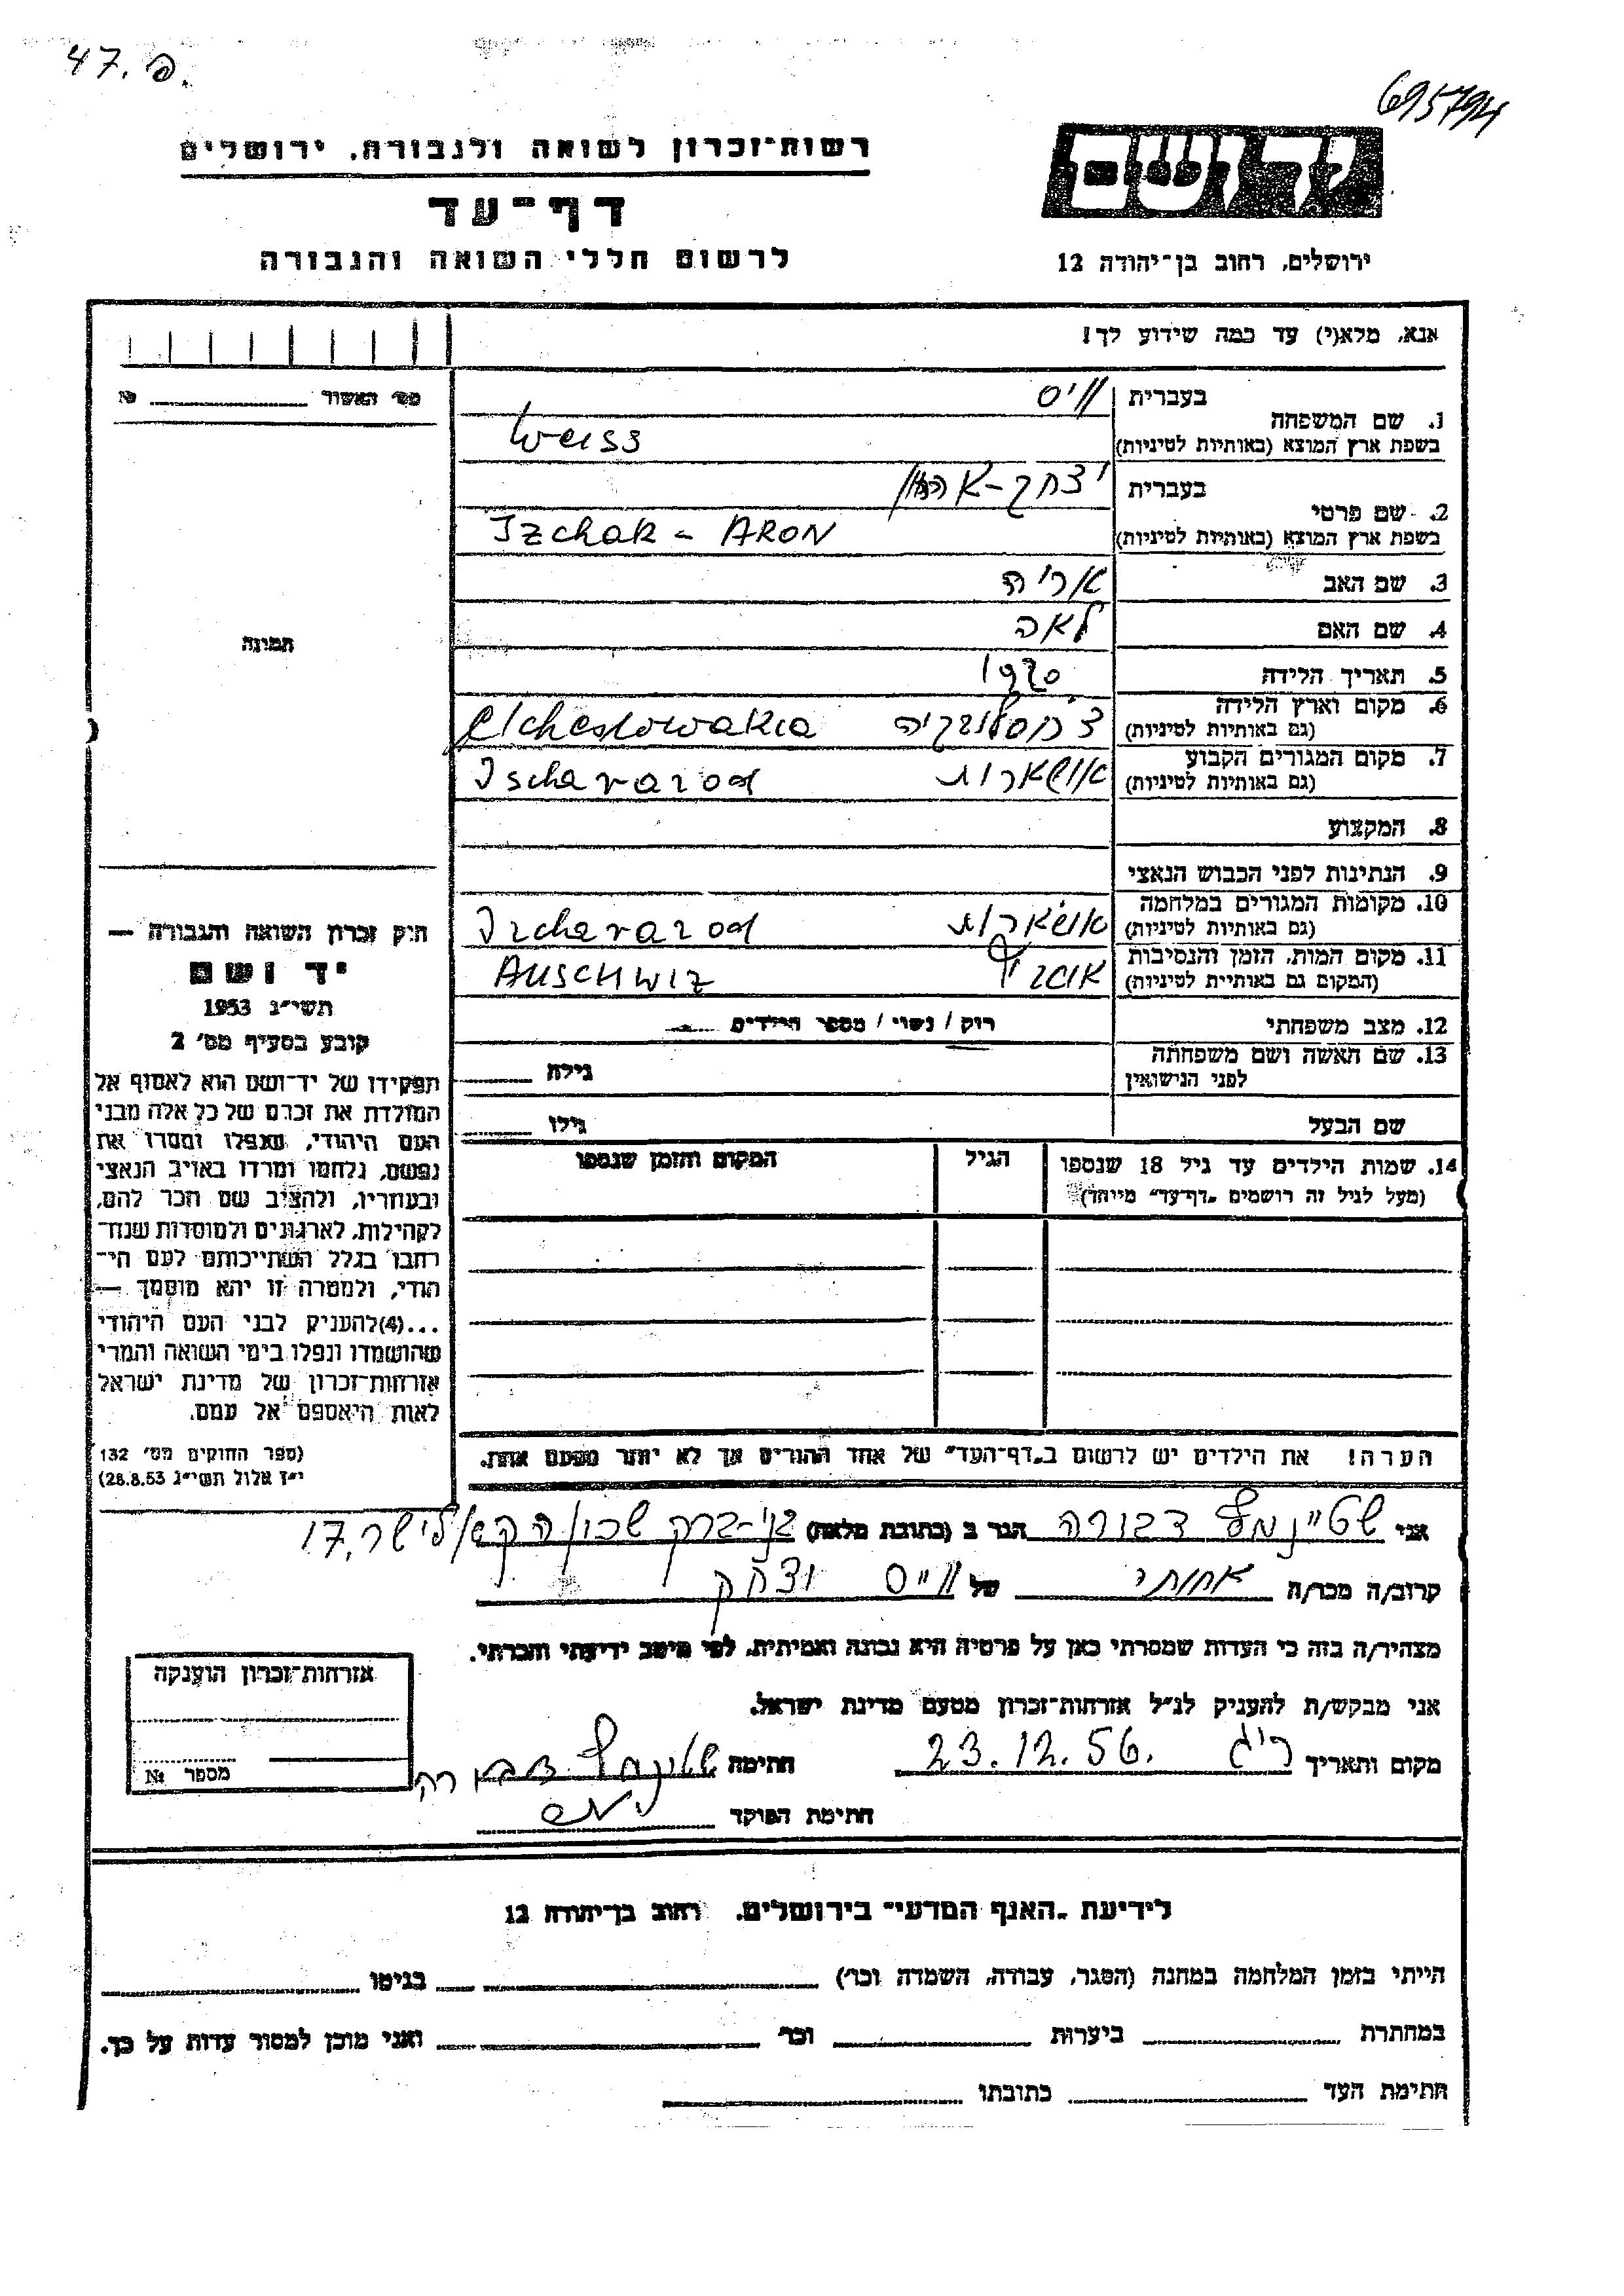 47. פ.
695794
רשות־זכרון לשואה ולגבורה, ירושלים
דף־עד
לרשום חללי השואה והגבורה
ידושם
ירושלים, רחוב בן־יהודה 12
אנא, מלא(י) עד כמה שידוע לך!
מס׳ האשור № 
1. שם המשפחה בעברית ווייס
בשפת ארץ המוצא (באותיות לטיניות) Weiss
2. שם פרטי בעברית יצחק-אהרון
בשפת ארץ המוצא (באותיות לטיניות) Izchak - ARON
3. שם האב אריה
4. שם האם לאה
5. תאריך הלידה 1920
6. מקום וארץ הלידה
(גם באותיות לטיניות) צ'כוסלובקיה Elcheslowakia
7. מקום המגורים הקבוע
(גם באותיות לטיניות) Ischavarod
8. המקצוע
9. הנתינות לפני הכבוש הנאצי
10. מקומות המגורים במלחמה
(גם באותיות לטיניות) Izchavarod
11. מקום המות, הזמן והנסיבות
(המקום גם באותיות לטיניות) AUSCHWIZ
12. מצב משפחתי רווק / נשוי / מספר הילדים
13. שם האשה ושם משפחתה
לפני הנישואין גילה
שם הבעל גילו
14. שמות הילדים עד גיל 18 שנספו הגיל המקום והזמן שנספו
(מעל לגיל זה רושמים „דף־עד״ מייחד)
הערה! את הילדים יש לרשום ב„דף־העד״ של אחד ההורים אך לא יותר מפעם אחת.
תמונה
חוק זכרון השואה והגבורה —
יד ושם
תשי״ג 1953
קובע בסעיף מס׳ 2
תפקידו של יד־ושם הוא לאסוף אל
המולדת את זכרם של כל אלה מבני
העם היהודי, שנפלו ומסרו את
נפשם, נלחמו ומרדו באויב הנאצי
ובעוזריו, ולהציב שם וזכר להם,
לקהילות, לארגונים ולמוסדות שנח־
רבו בגלל השתייכותם לעם הי־
הודי, ולמטרה זו יהא מוסמך —
...(4)להעניק לבני העם היהודי
שהושמדו ונפלו בימי השואה והמרי
אזרחות־זכרון של מדינת ישראל
לאות היאספם אל עמם.
(ספר החוקים מס׳ 132
י״ז אלול תשי״ג 28.8.53)
אני שטיינמץ דבורה הגר ב (כתובת מלאה) בני-ברק שכון 17.
קרוב/ה מכר/ה אחותי של ווייס יצחק
מצהיר/ה בזה כי העדות שמסרתי כאן על פרטיה היא נכונה ואמיתית, לפי מיטב ידיעתי והכרתי.
אני מבקש/ת להעניק לנ״ל אזרחות־זכרון מטעם מדינת ישראל.
מקום ותאריך ר״ג 23.12.56. חתימה שטינמץ דבורה
חתימת הפוקד
אזרחות־זכרון הוענקה
מספר №
לידיעת „האגף המדעי״ בירושלים, רחוב בן־יהודה 12
הייתי בזמן המלחמה במחנה (הסגר, עבודה, השמדה וכו׳) בגיטו
במחתרת ביערות וכו׳ ואני מוכן למסור עדות על כך.
חתימת העד כתובתו